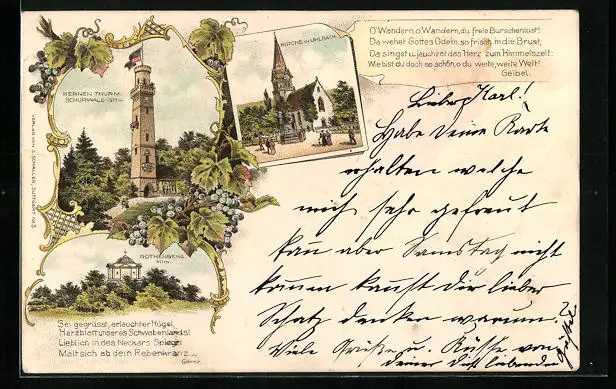 KERNEN THURM.
SCHURWALD 511 m.
KIRCHE IN UHLBACH.
O' Wandern, o Wandern, du freie Burschenlust!
Da wehet Gottes Odem so frisch in die Brust,
Da singet u. jauchzet das Herz zum Himmelszelt:
Wie bist du doch so schön, o du weite, weite Welt!
Geibel.
ROTHENBERG
411 m.
Sei gegrüsst, erlauchter Hügel,
Herzblatt unseres Schwabenlands!
Lieblich in des Neckars Spiegel
Malt sich ab dein Rebenkranz.
Gerok
VERLAG VON SCHALLER, STUTTGART
Lieber Karl!
Habe Deine Karte
erhalten welche
mich sehr gefreut
kan aber Samstag nicht
komen kanst Dir lieber
Schatz denken warum?
Viele Grüße u. Küsse von
deiner dich liebenden